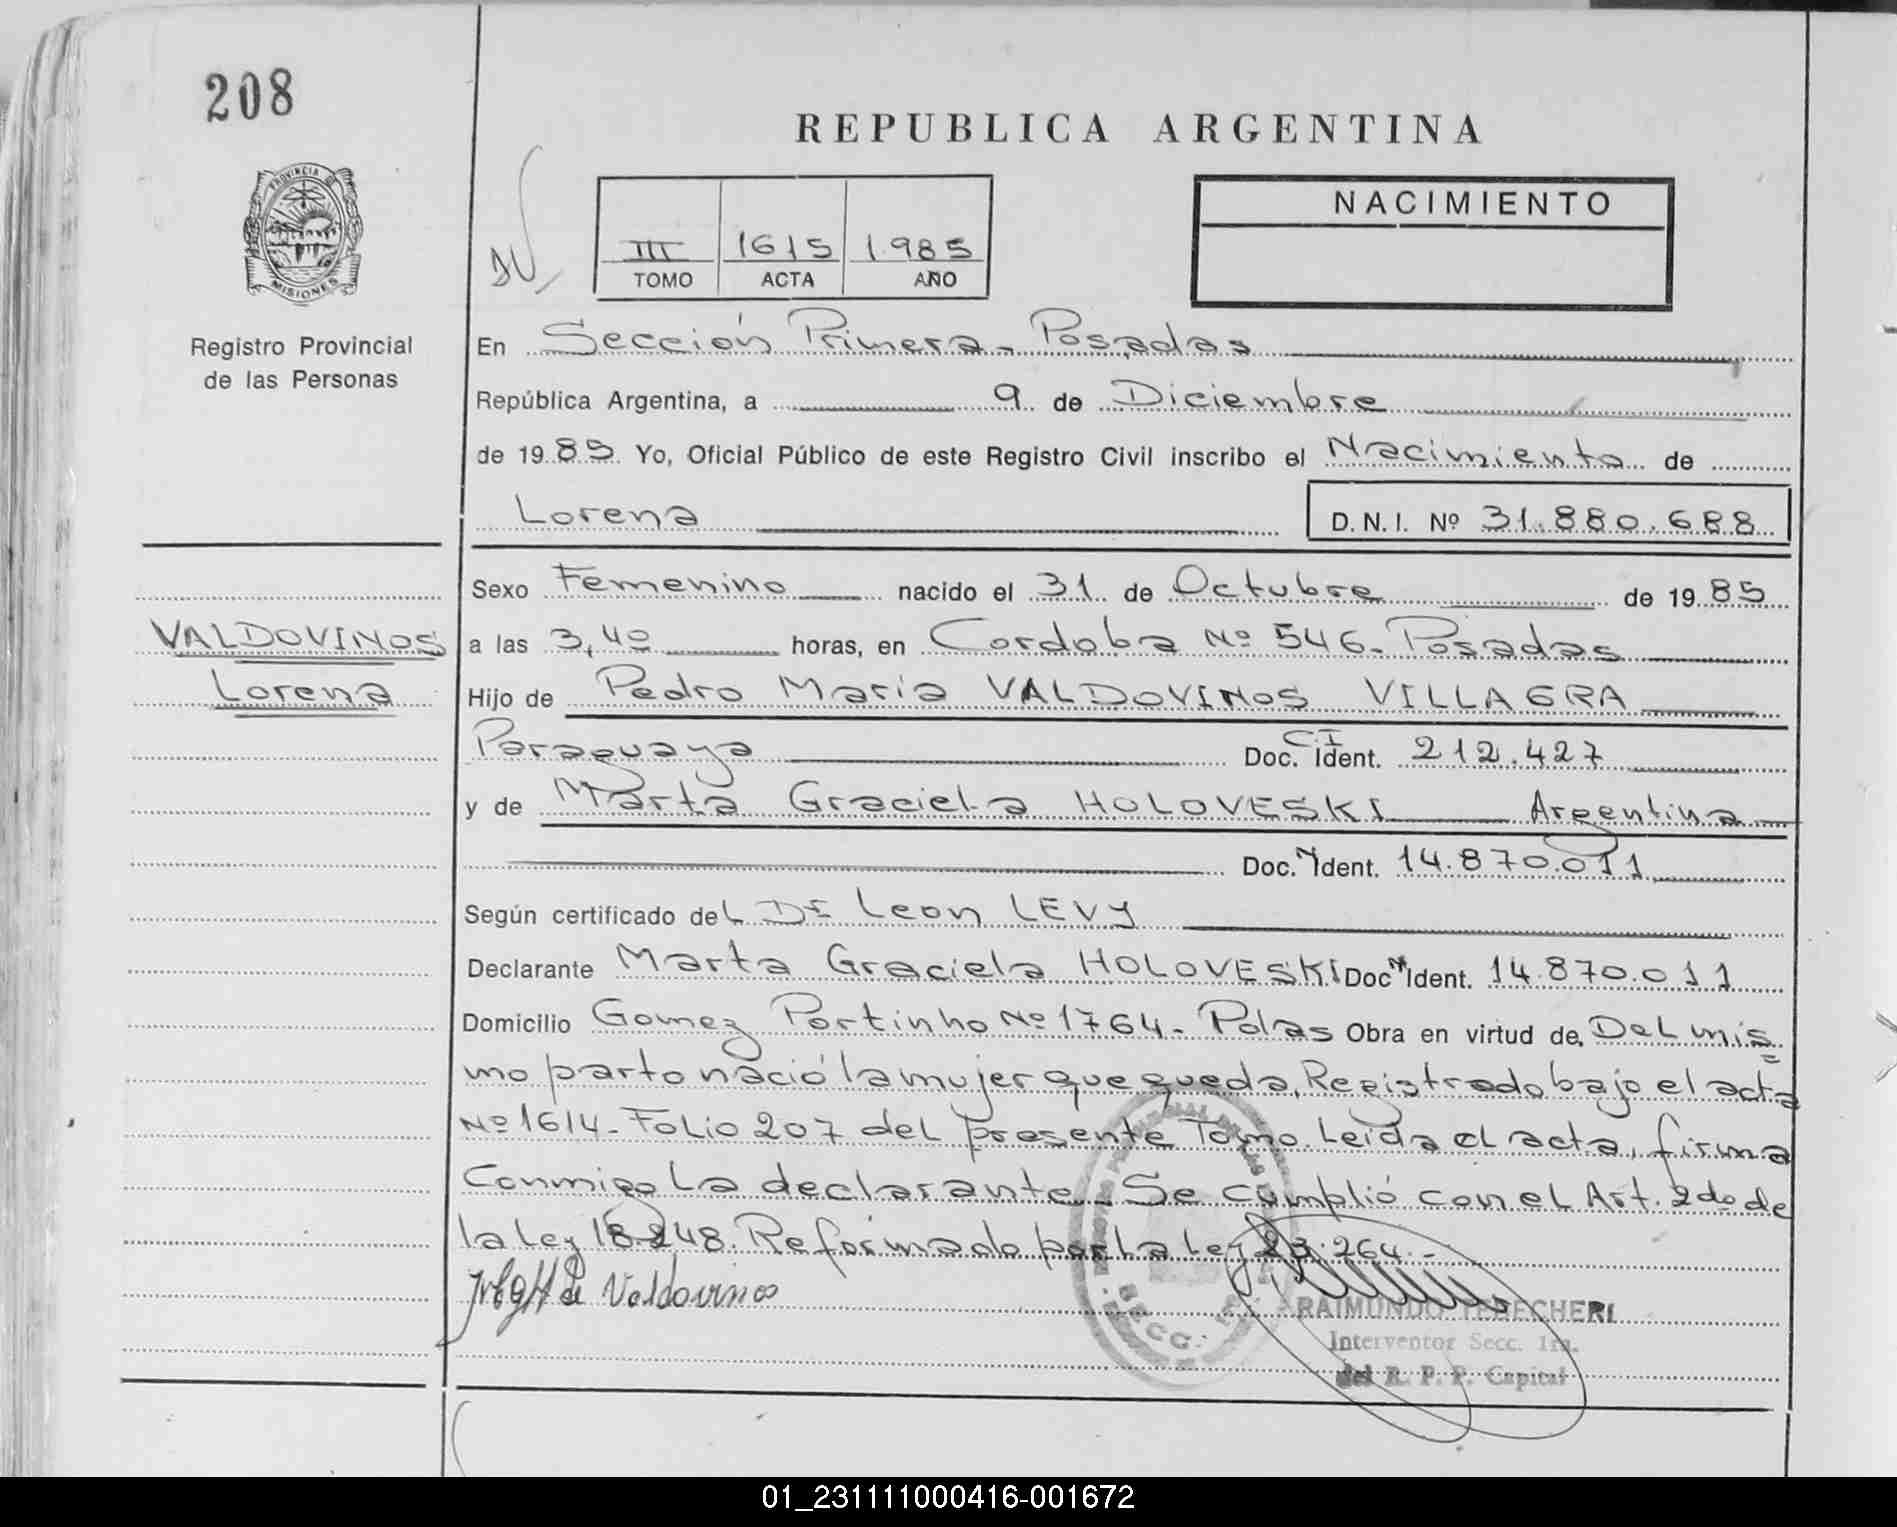 208
REPUBLICA ARGENTINA
PROVINCIA DE
MISIONES
Registro Provincial
de las Personas
III 1615 1.985
TOMO ACTA AÑO
NACIMIENTO
En Sección Primera - Posadas
República Argentina, a 9 de Diciembre
de 1985 Yo, Oficial Público de este Registro Civil inscribo el Nacimiento de
Lorena D.N.I. Nº 31.880.688
Sexo Femenino nacido el 31 de Octubre de 1985
VALDOVINOS
Lorena
a las 3,40 horas, en Cordoba Nº 546 - Posadas
Hijo de Pedro Maria VALDOVINOS VILLAGRA
Paraguaya Doc. C.I Ident. 212.427
y de Marta Graciela HOLOVESKI Argentina
Doc. N Ident. 14.870.011
Según certificado del Dr Leon LEVY
Declarante Marta Graciela HOLOVESKI Doc N Ident. 14.870.011
Domicilio Gomez Portinho Nº 1764 - Pdas Obra en virtud de Del mis
mo parto nació la mujer que queda Registrado bajo el acta
Nº 1614 - Folio 207 del presente Tomo. Leida el acta, firma
Conmigo la declarante - Se cumplió con el Art. 2do de
la Ley 18248. Reformado por la Ley 23.264.-
de Valdovinos
SECC.
RAIMUNDO
Interventor Secc. 1ra.
del R. P. P. Capital
01_231111000416-001672